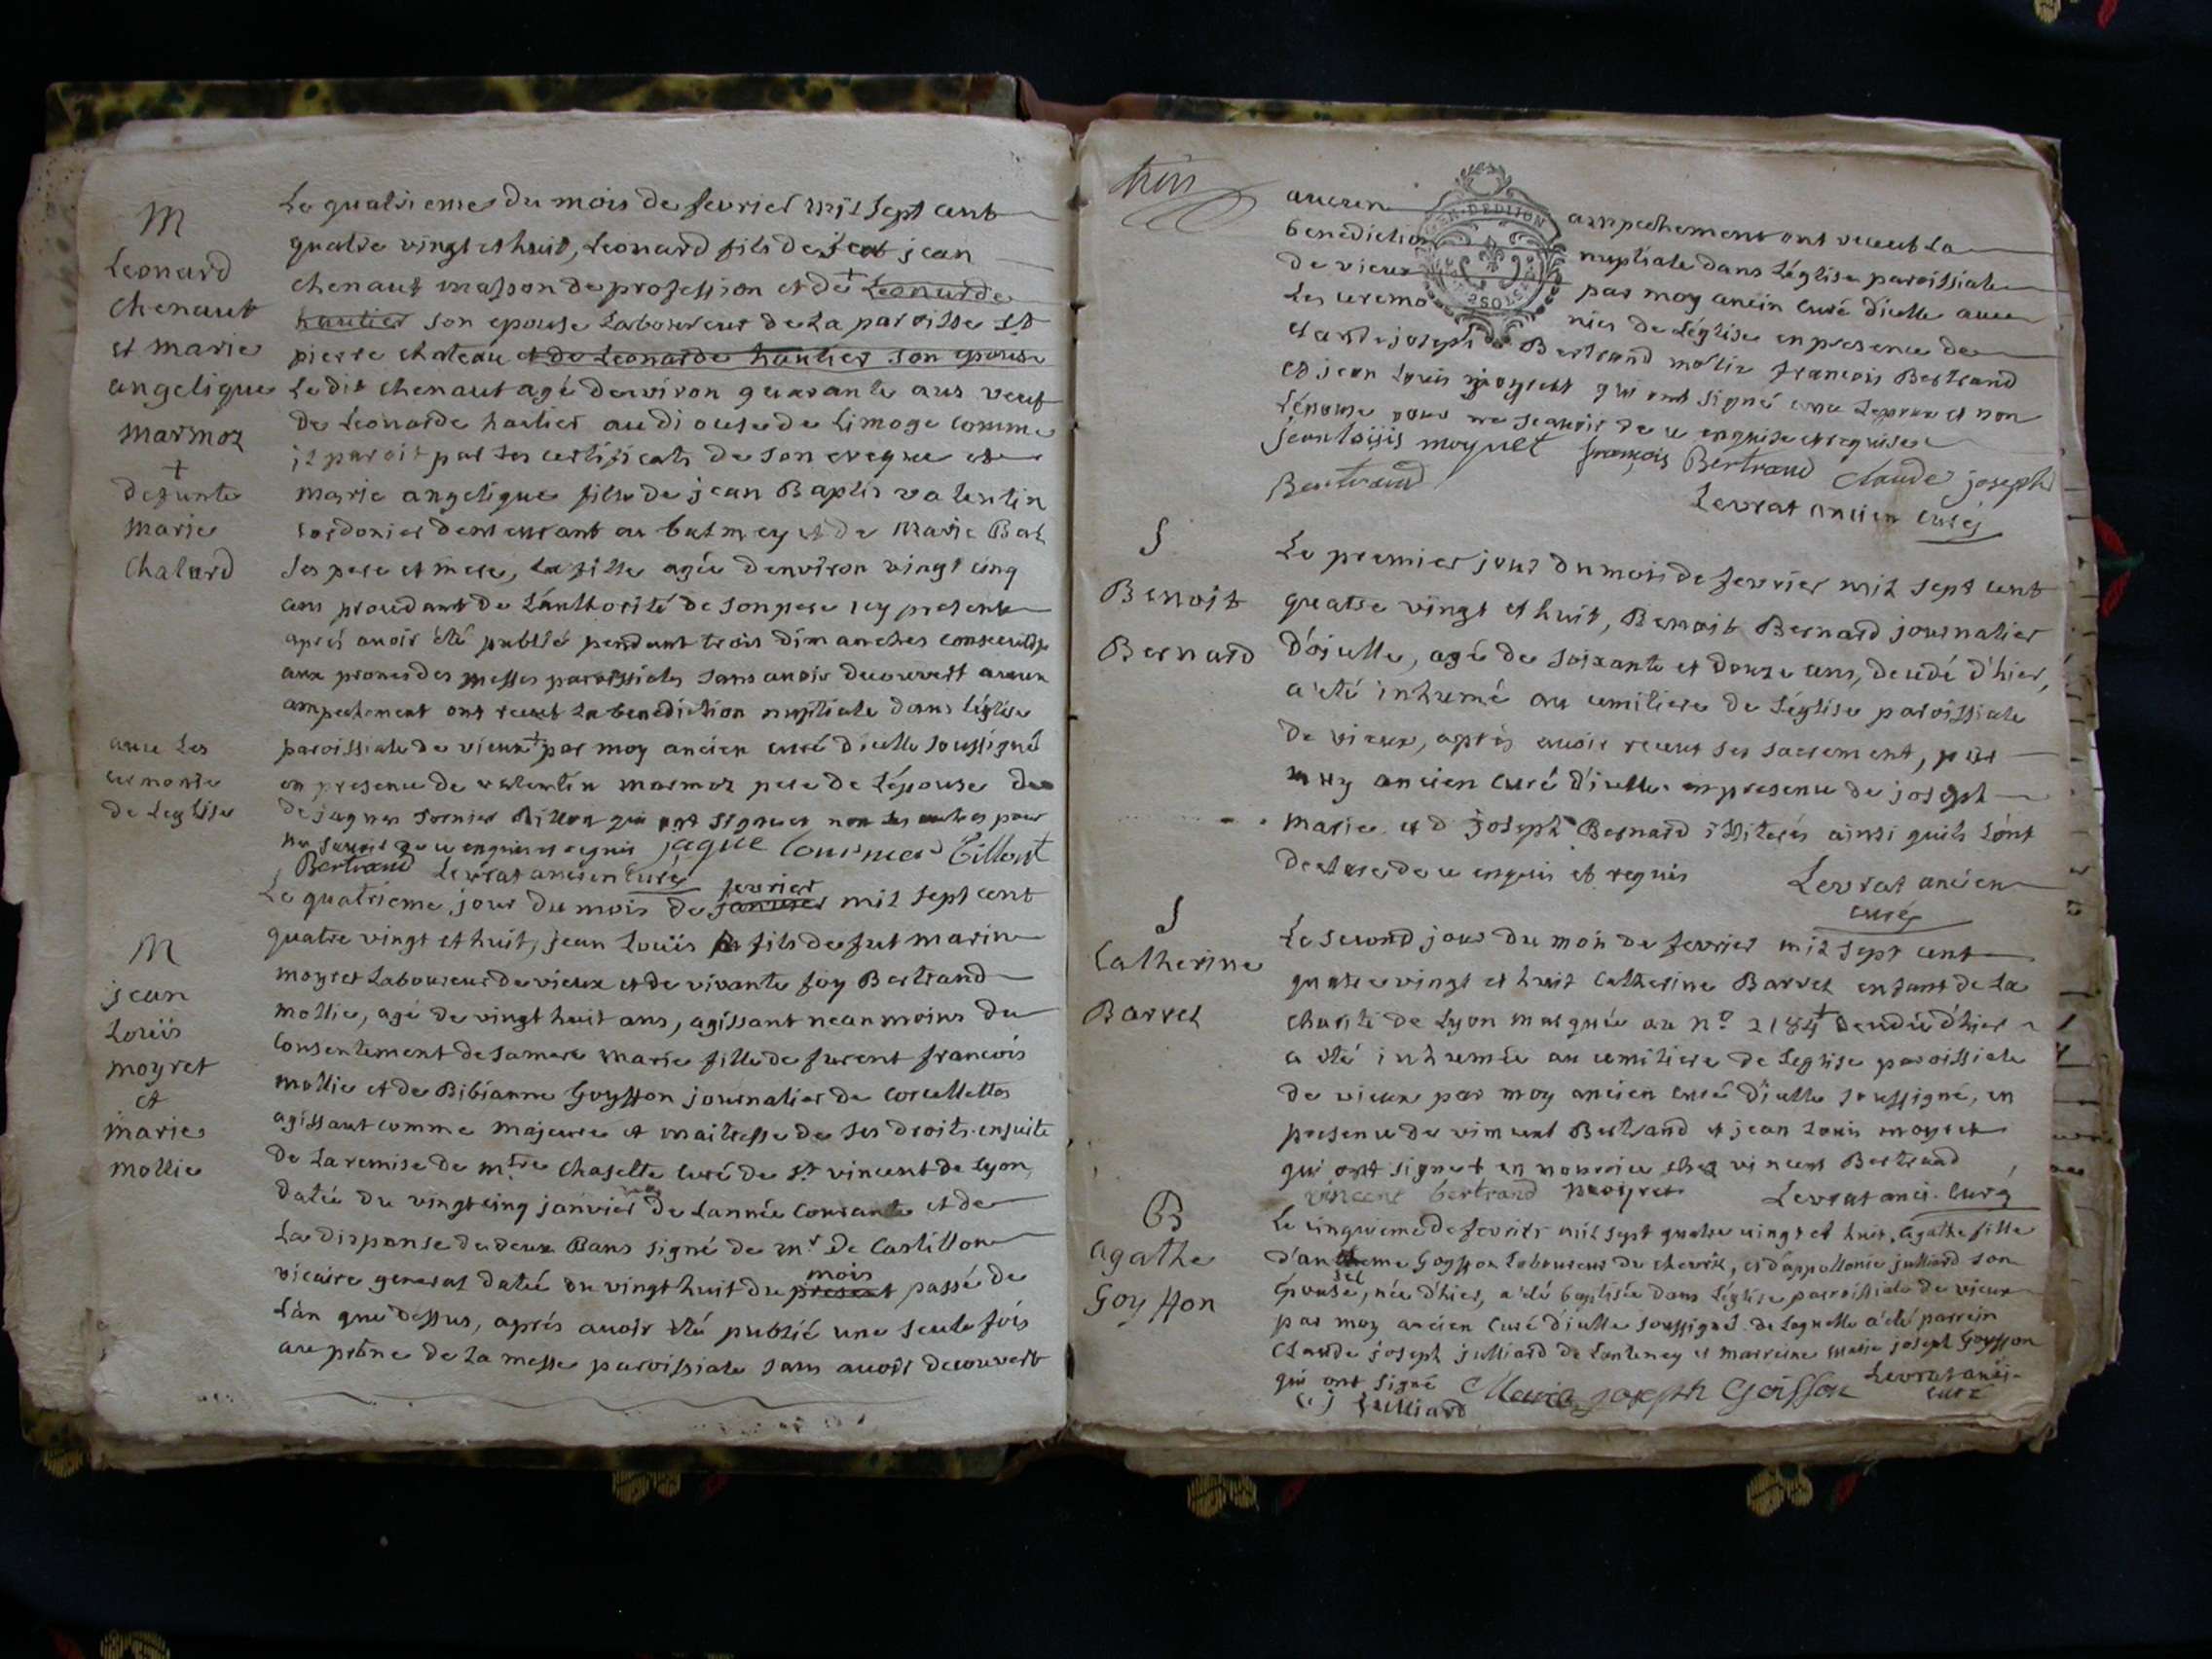 M
Leonard
chenaut
et marie
angelique
marmoz
+
defunte
marie
Chalard
Le quatrieme du mois de fevrier mil sept cent
quatre vingt et huit, Leonard fils de jean
chenaut masson de profession et de + Leonarde
hautier son epouse Laboureur de la paroisse St
pierre chateau et de Leonarde hautier son epouse
Le dit chenaut agé denviron quarante ans veuf
de Leonarde hautier au diocese de Limoge comme
il paroit par les certificats de son eveque et
marie angelique fille de jean Baptis valentin
cordonier demeurant au batmey et de Marie
ses pere et mere, La fille agée denviron vingt cinq
ans procedant de L'authorité de son pere icy present
aprés avoir été publié pendant trois dimanches
aux prones des messes paroissiales sans avoir decouvert aucun
ampechement ont recut La benediction nuptiale dans l'église
paroissiale de vieux + par moy ancien curé d'icelle soussigné
avec les
ceremonie
de Leglise
en presence de valentin marmoz pere de L'épouse
de jaques qui ont signer non les autres pour
ne savoir de ce enquis et requis jaque
Bertrand Levrat ancien curé
M
jean
Loüis
moyret
et
marie
mollie
Le quatrieme jour du mois de janvier fevrier mil sept cent
quatre vingt et huit, jean Loüis fils de fut marin
moyret Laboureur de vieux et de vivante foy Bertrand
mollie, agé de vingt huit ans, agissant neanmoins du
consentement de sa mere marie fille de furent francois
mollie et de Bibianne Goyffon journalier de corcellettes
agissant comme majeure et maitresse de ses droits. ensuite
de La remise de mtre chasette curé de St vincent de Lyon,
datée du vingt cinq janvier de L'année courante et de
La dispanse de deux Bans signé de mr De Castillon
vicaire general datée du vingt huit du present mois passé de
L'an que dessus, aprés avoir été publié une seule fois
au prône de La messe paroissiale sans avoir decouvert
aucun ampechement ont recut La
benediction nuptiale dans L'église paroissiale
de vieux par moy ancien curé d'icelle avec
Les ceremonies de L'église en presence de
claude joseph Bertrand mollie francois Bertrand
et jean Loüis moyret qui ont signé avec L'epoux et non
L'épouse pour ne scavoir de ce enquise et requise
jean loüis moyret françois Bertrand Claude joseph
Bertrand
Levrat ancien curé
S
Benoit
Bernard
Le premier jour du mois de fevrier mil sept cent
quatre vingt et huit, Benoit Bernard journalier
d'ojulle, agé de soixante et douze ans, decedé d'hier,
a été inhumé au cemitiere de L'église paroissiale
de vieux, aprés avoir recut ses sacrement, par
moy ancien curé d'icelle. en presence de joseph
marie et d joseph Bernard illiterés ainsi quils L'ont
declaré de ce enquis et requis Levrat ancien
curé
S
Catherine
Barret
Le second jour du mois de fevrier mil sept cent
quatre vingt et huit Catherine Barret enfant de La
charité de Lyon marquée au no 2184 + decedée d'hier
a été inhumée au cemitiere de L'eglise paroissiale
de vieux par moy ancien curé d'icelle soussigné, en
presence de vincent Bertrand et jean Louis moyret
qui ont signer en nourrice chez vincent Bertrand
vincent bertrand moyret Levrat anci. curé
B
agathe
Goyffon
Le cinquieme de fevrier mil sept quatre vingt et huit, agathe fille
Goyffon Laboureur de chevrie, et d'appollonie julliard son
épouse, née d'hier, a été baptisée dans L'église parroissiale de vieux
par moy ancien curé d'icelle soussigné. de Laquelle a été parrein
Claude joseph julliard de Lanteney et marreine marie joseph Goyffon
qui ont signé Marie joseph Goiffon Levrat anci.
curé
c j julliard